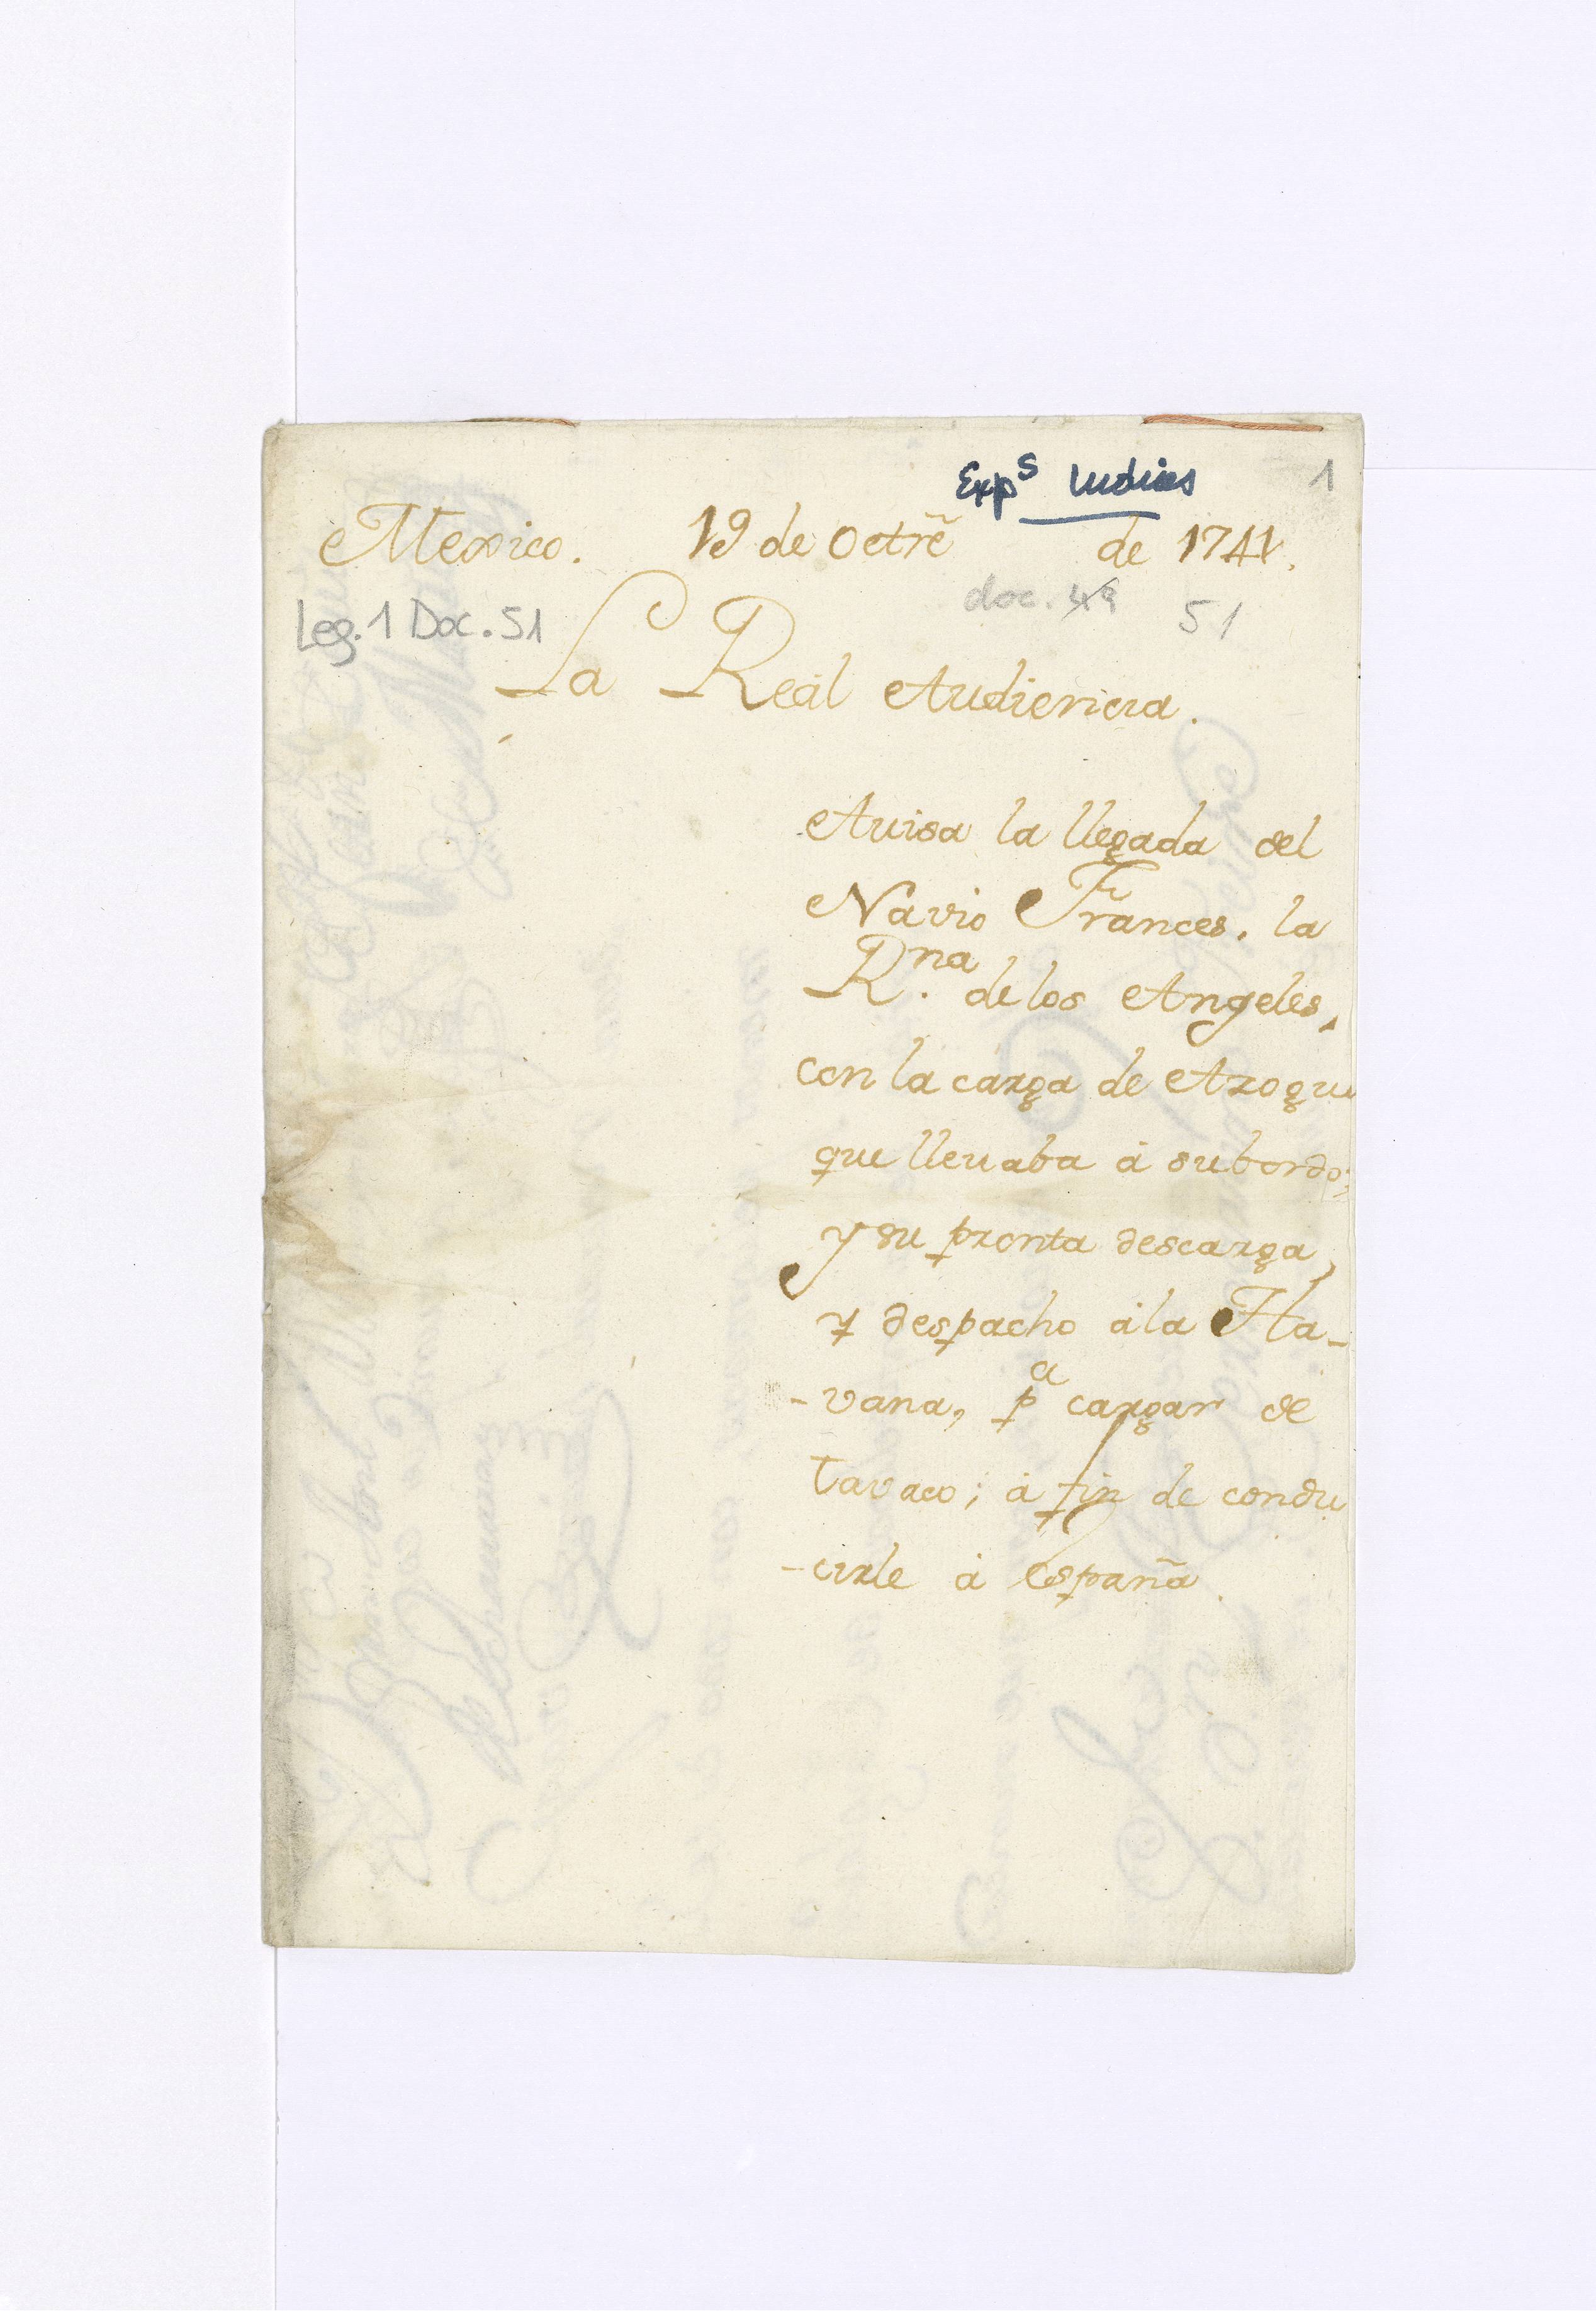 Exp^s Indias
1
Mexico. 19 de Octrẽ de 1741.
doc. 49 51
Leg. 1 Doc. 51
La Real Audiencia.
Auisa la llegada del
Navio Frances, la
R^na. de los Angeles,
con la carga de Azogue
que lleuaba á subordo;
y su pronta descarga,
y despacho á la Ha-
-vana, p^a cargar de
tavaco; á fin de condu
-cirle á España.